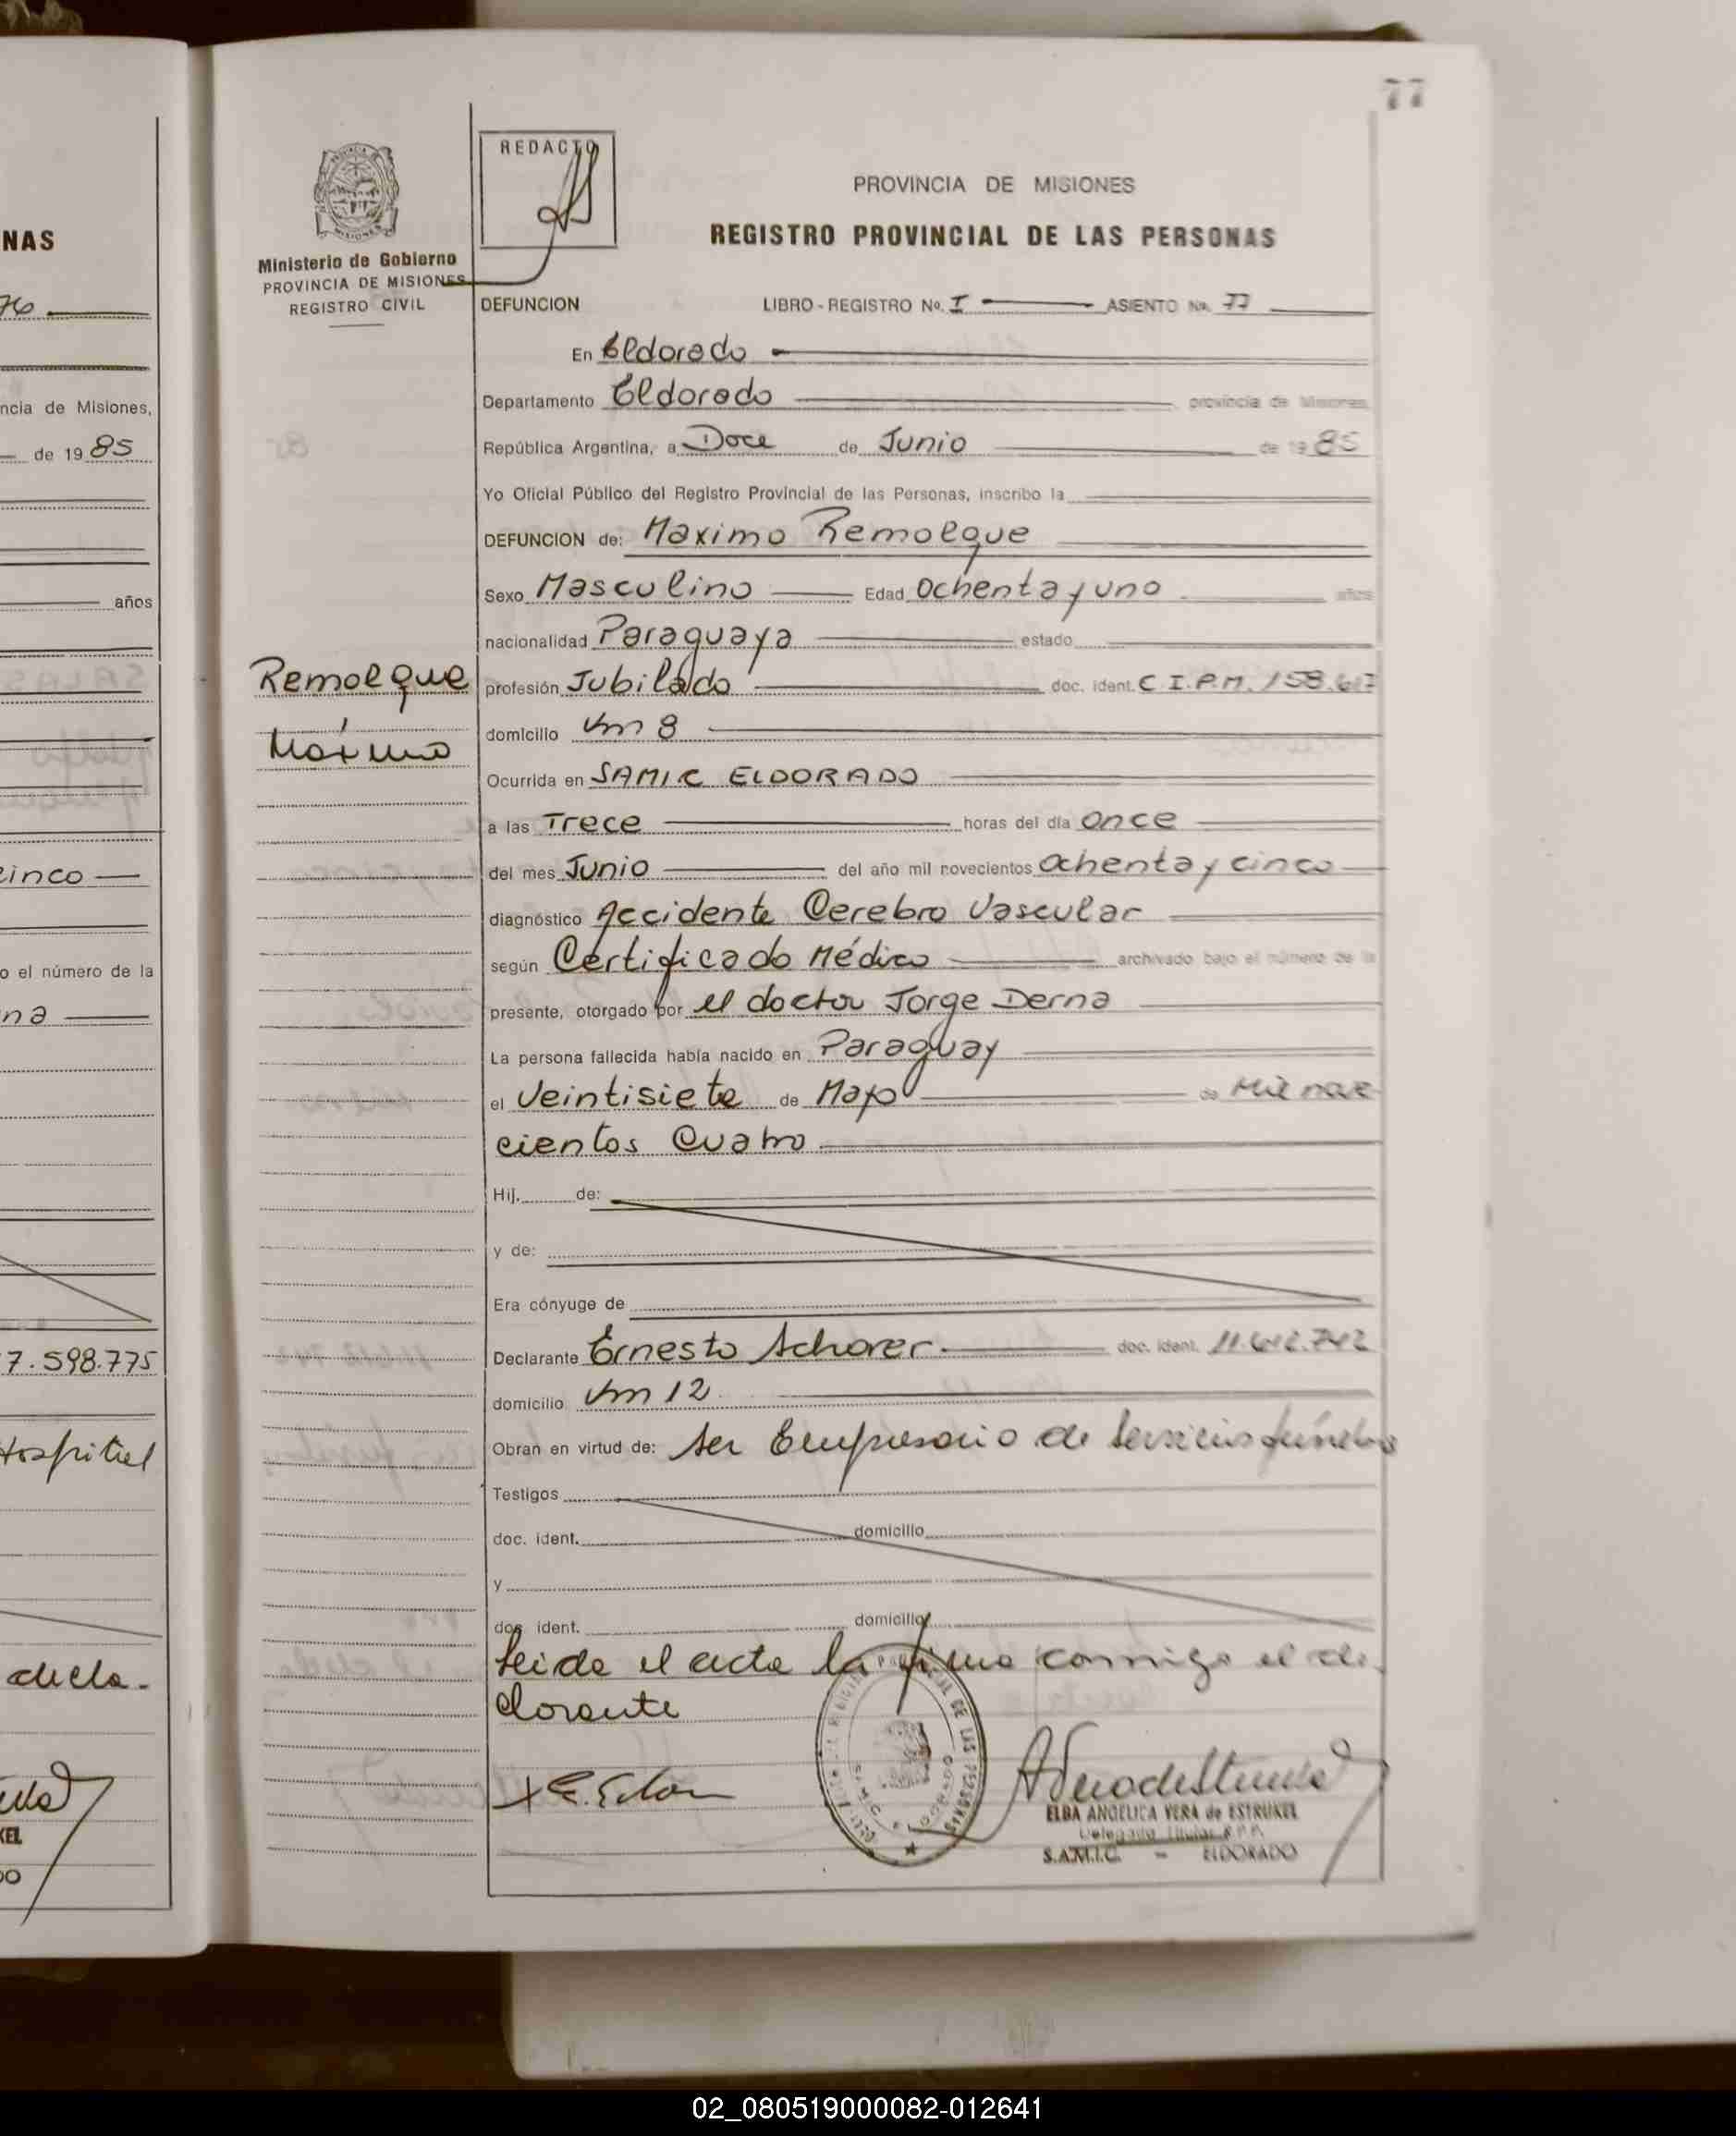 77
NAS
76
ncia de Misiones,
de 19 85
años
cinco
o el número de la
na
7.598.775
Hospital
decla-
KEL
DO
PROVINCIA DE MISIONES
Ministerio de Gobierno
PROVINCIA DE MISIONES
REGISTRO CIVIL
Remolque
Máximo
REDACTO
PROVINCIA DE MISIONES
REGISTRO PROVINCIAL DE LAS PERSONAS
DEFUNCION LIBRO-REGISTRO No. I ASIENTO No. 77
En Eldorado
Departamento Eldorado provincia de Misiones
República Argentina, a Doce de Junio de 19 85
Yo Oficial Público del Registro Provincial de las Personas, inscribo la
DEFUNCION de: Maximo Remolque
Sexo Masculino Edad Ochenta y uno años
nacionalidad Paraguaya estado
profesión Jubilado doc. ident. C.I.P.M. 158.617
domicilio Km 8
Ocurrida en SAMIC ELDORADO
a las Trece horas del día once
del mes Junio del año mil novecientos Ochenta y cinco
diagnóstico Accidente Cerebro Vascular
según Certificado Médico archivado bajo el número de la
presente, otorgado por el doctor Jorge Derna
La persona fallecida había nacido en Paraguay
el Veintisiete de Mayo de Mil nove
cientos Cuatro
Hij. de:
y de:
Era cónyuge de
Declarante Ernesto Schorer doc. ident. 11.612.742
domicilio Km 12
Obran en virtud de: ser Empresario de Servicios fúnebres
Testigos
doc. ident. domicilio
y
doc. ident. domicilio
Leida el acta la firma conmigo el de
clarante
ELBA ANGELICA VERA de ESTRUKEL
Delegado Titular R.P.P.
S.A.M.I.C. - ELDORADO
02_080519000082-012641